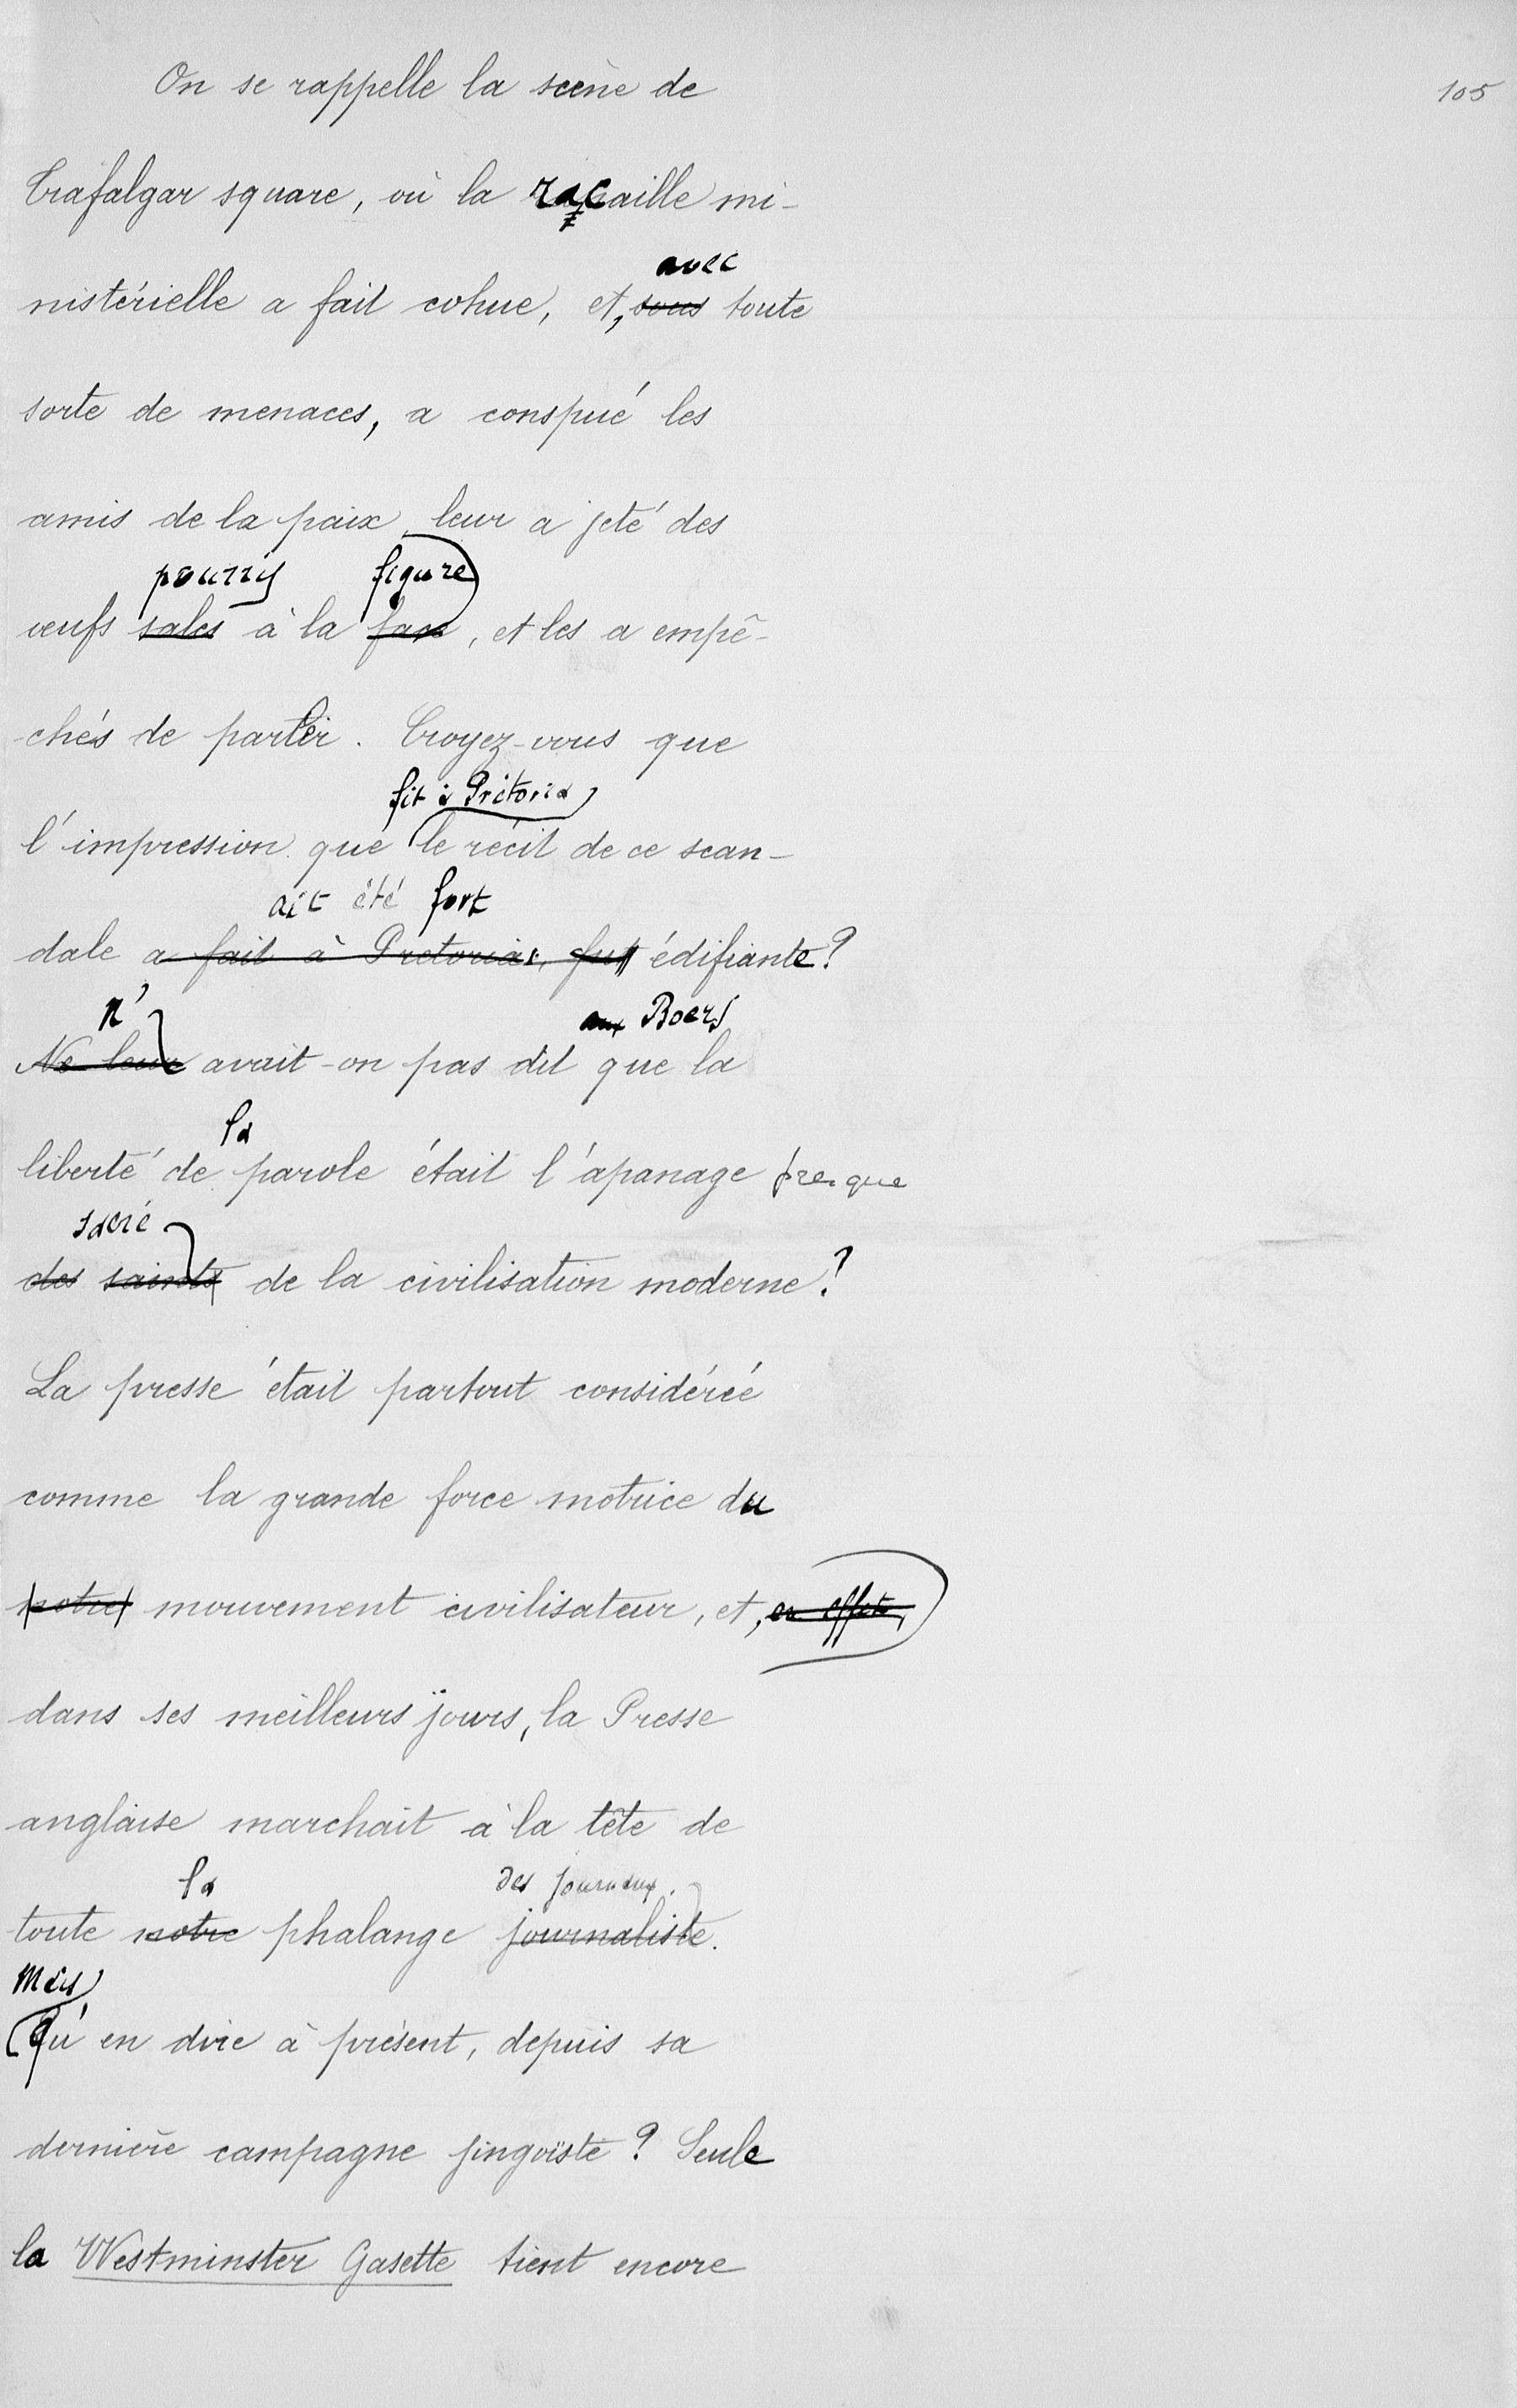 105
On se rappelle la scène de
Trafalgar square, où la racaille mi-
avec
nistérielle a fait cohue, et, sous toute
sorte de menaces, a conspué les
amis de la paix, leur a jeté des
pourris figure
œufs sales à la face, et les a empê-
chés de parler. Croyez-vous que
fit à Prétoria
l'impression que le récit de ce scan-
ait été fort
dale a fait à Pretoria, fut édifiante?
n' aux Boers
Ne leur avait-on pas dit que la
la
liberté de parole était l'apanage presque
sacré
des saints de la civilisation moderne?
La presse était partout considérée
comme la grande force motrice du
notre mouvement civilisateur, et, en effet,
dans ses meilleurs jours, la Presse
anglaise marchait à la tête de
la des journaux.
toute notre phalange journaliste.
Mais
Qu'en dire à présent, depuis sa
dernière campagne jingoïste? Seule
la Westminster Gasette tient encore